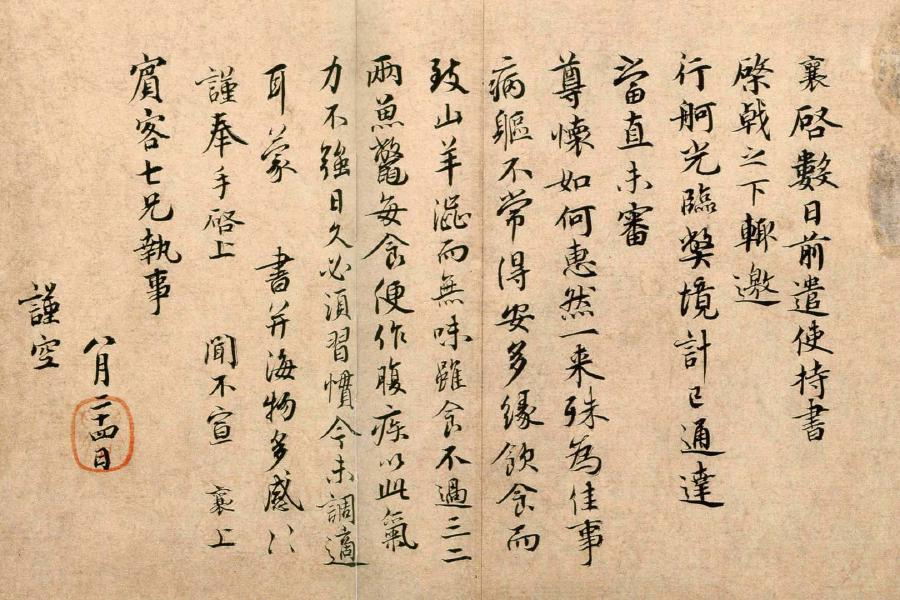 襄啓數日前遣使持書
棨戟之下輙邀
行舸光臨獘境計已通達
當直未審
尊懷如何惠然一来殊為佳事
病軀不常得安多縁飲食而
致山羊澁而無味雖食不過三二
兩魚鼈每食便作腹疾以此氣
力不強日久必須習慣今未調適
耳蒙 書并海物多感〻
謹奉手啓上 聞不宣 襄上
賔客七兄執事
八月二十四日
謹空